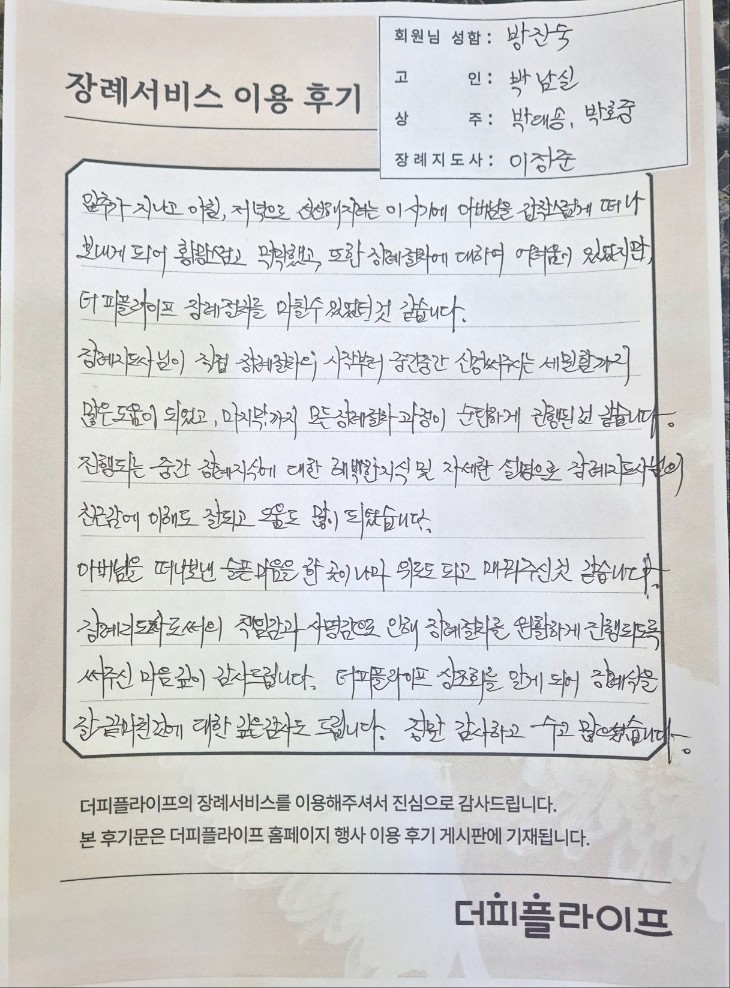 회원님 성함 : 방진숙
고 인 : 박남실
상 주 : 박대송, 박호중
장례지도사 : 이장준
장례서비스 이용 후기
입추가 지나고 아침, 저녁으로 선선해지려는 이 시기에 아버님을 갑작스럽게 떠나
보내게 되어 황망스럽고 막막했고, 또한 장례절차에 대하여 어려움이 있었지만,
더피플라이프 장례절차를 마칠수 있었던것 같습니다.
장례지도사님이 직접 장례절차의 시작부터 중간중간 신경써주시는 세밀함까지
많은도움이 되었고, 마지막까지 모든장례절차 과정이 순탄하게 진행된것 같습니다.
진행되는 중간 장례지식에 대한 해박한지식 및 자세한 설명으로 장례지도사님의
친근감에 이해도 잘되고 도움도 많이 되었습니다.
아버님을 떠나보낸 슬픈마음을 한 곳이나마 위로도 되고 채워주신것 같습니다.
장례지도사로써의 책임감과 사명감으로 인해 장례절차를 원활하게 진행되도록
써주신 마음 깊이 감사드립니다. 더피플라이프 상조회을 알게 되어 장례식을
잘 끝마친것에 대한 깊은감사도 드립니다. 정말 감사하고 수고 많으셨습니다.
더피플라이프의 장례서비스를 이용해주셔서 진심으로 감사드립니다.
본 후기문은 더피플라이프 홈페이지 행사 이용 후기 게시판에 기재됩니다.
더피플라이프